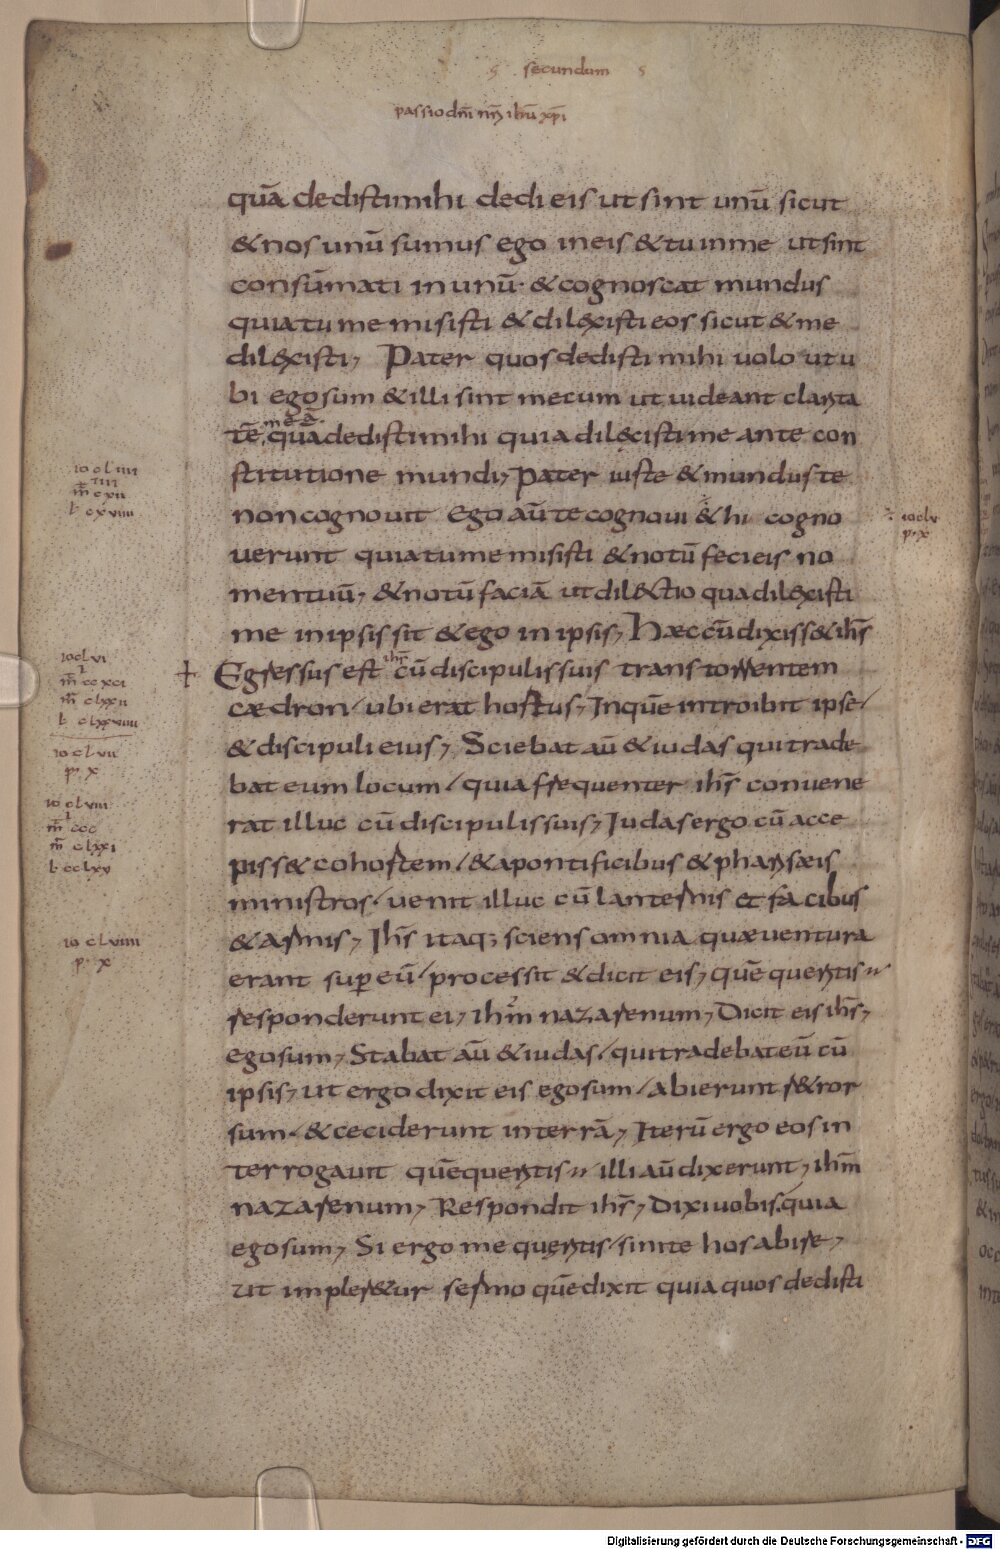 secundum
passio dn̄i nr̄i ihū xp̄i
quā dedisti mihi dedi eis ut sint unū sicut
& nos unū sumus ego in eis & tu in me ut sint
consūmati in unū · & cognoscat mundus
quia tu me misisti & dilexisti eos sicut & me
dilexisti, Pater quos dedisti mihi uolo ut u
bi ego sum & illi sint mecum ut uideant clarita
mea
tē quā dedisti mihi quia dilexisti me ante con
stitutione mundi, Pater iuste & mundus te
non cognouit Ego aū te cognoui & hi cogno
uerunt quia tu me misisti & notū feci eis no
men tuū, & notū faciā ut dil&tio qua dilexisti
me in ipsis sit & ego in ipsis, Haec cū dixiss& ihs̄
ihs̄
Egressus est cū discipulis suis trans torrentem
caedron / ubi erat hortus, In quē introibit ipse /
& discipuli eius, Sciebat aū & iudas qui trade
bat eum locum / quia frequenter ihs̄ conuene
rat illuc cū discipulis suis, Iudas ergo cū acce
piss& cohortem / & a pontificibus & pharisaeis
ministros / uenit illuc cū lanternis et facibus
& armis, Ihs̄ itaq; sciens omnia quae uentura
erant sup eū / processit & dicit eis, quē queritis
responderunt ei, ihm̄ nazarenum, Dicit eis ihs̄,
ego sum, Stabat aū & iudas / qui tradebat eū cū
ipsis, ut ergo dixit eis ego sum / abierunt r&ror
sum / & ceciderunt in terrā, Iterū ergo eos in
terrogauit quē queritis illi aū dixerunt, ihm̄
nazarenum, Respondit ihs̄, Dixi uobis quia
ego sum, Si ergo me queritis / sinite hos abire,
ut impler&ur sermo quē dixit quia quos dedisti
io cl iiii
iiii
m̄ cxii
l cxviiii
io clv
p· x
io clvi
i
m̄ ccxci
m̄ clxxii
l clxxviiii
io clvii
p· x
io clviii
i
m̄ ccc
m̄ clxxi
l cclxxv
io clviiii
p· x
Digitalisierung gefördert durch die Deutsche Forschungsgemeinschaft - DFG